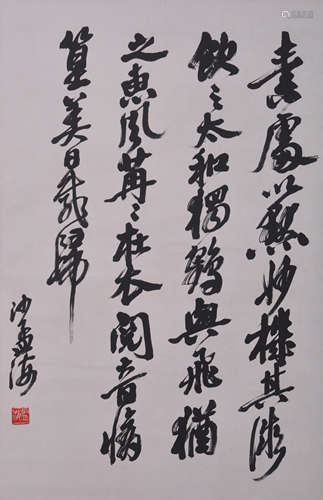 素處以默妙機其微
飲之太和獨鶴與飛猶
之惠風荏苒在衣閱音修
篁美曰載歸
沙孟海